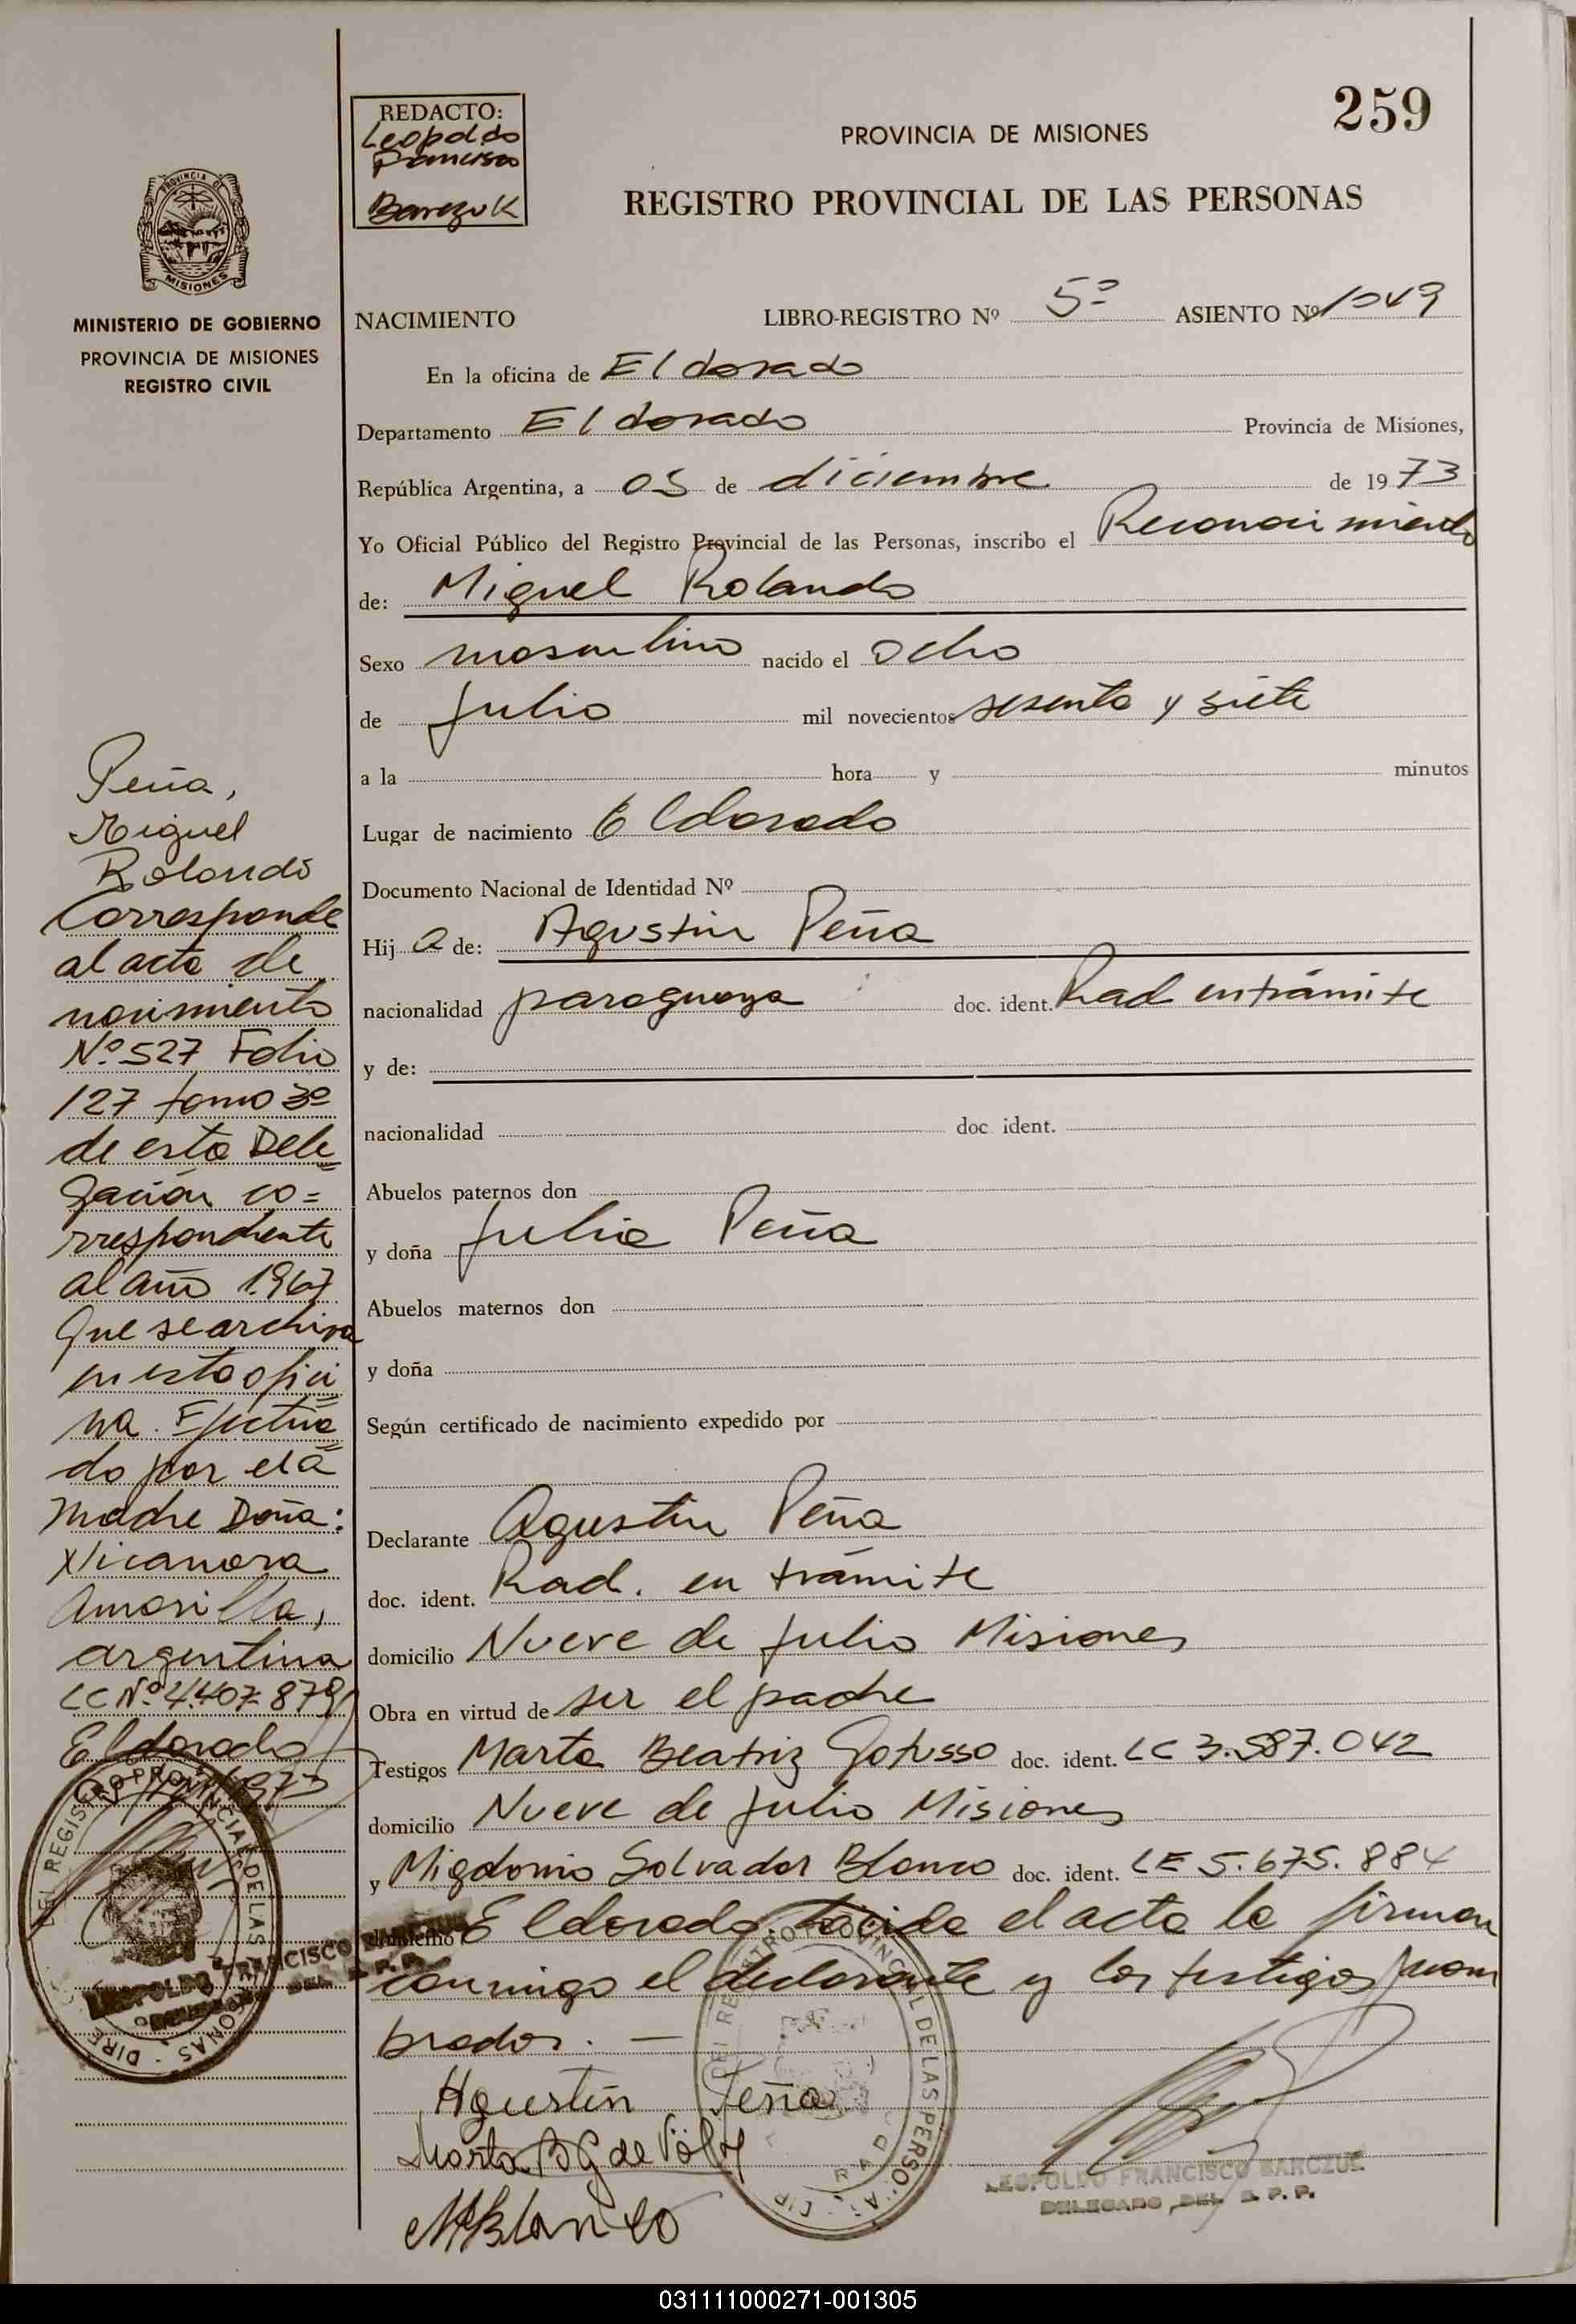 259
REDACTO:
Leopoldo
Francisco
Barczuk
PROVINCIA DE MISIONES
REGISTRO PROVINCIAL DE LAS PERSONAS
PROVINCIA DE
MISIONES
MINISTERIO DE GOBIERNO
PROVINCIA DE MISIONES
REGISTRO CIVIL
NACIMIENTO LIBRO-REGISTRO Nº 5º ASIENTO Nº 1049
En la oficina de Eldorado
Departamento Eldorado Provincia de Misiones,
República Argentina, a 05 de diciembre de 1973
Yo Oficial Público del Registro Provincial de las Personas, inscribo el Reconocimiento
de: Miguel Rolando
Sexo masculino nacido el ocho
de julio mil novecientos sesenta y siete
a la hora y minutos
Lugar de nacimiento Eldorado
Documento Nacional de Identidad Nº
Hij o de: Agustin Peña
nacionalidad paraguaya doc. ident. Rad en trámite
y de:
nacionalidad doc. ident.
Abuelos paternos don
y doña Julia Peña
Abuelos maternos don
y doña
Según certificado de nacimiento expedido por
Declarante Agustin Peña
doc. ident. Rad. en trámite
domicilio Nueve de Julio Misiones
Obra en virtud de ser el padre
Testigos Marta Beatriz Gotusso doc. ident. LC 3.587.042
domicilio Nueve de Julio Misiones
y Migdonio Salvador Blanco doc. ident. LE 5.675.884
domicilio Eldorado. Leida el acta la firman
conmigo el declarante y los testigos nom
brados. —
Agustin Peña
Marta B G de
M Blanco
LEOPOLDO FRANCISCO BARCZUK
DELEGADO DEL R. P. P.
Peña,
Miguel
Rolando
Corresponde
al acta de
nacimiento
Nº 527 Folio
127 tomo 3º
de esta Dele=
gación co=
rrespondiente
al año 1967
Que se archiva
en esta ofici=
na. Efectua=
do por el a
madre Doña:
Nicanora
Amarilla,
argentina
LC Nº 4.407.879
Eldorado
DEL REGISTRO PROVINCIAL DE LAS PERSONAS - DIRE
LEOPOLDO FRANCISCO BARCZUK
DELEGADO DEL R. P. P.
DEL REGISTRO PROVINCIAL DE LAS PERSONAS - DIR
031111000271-001305